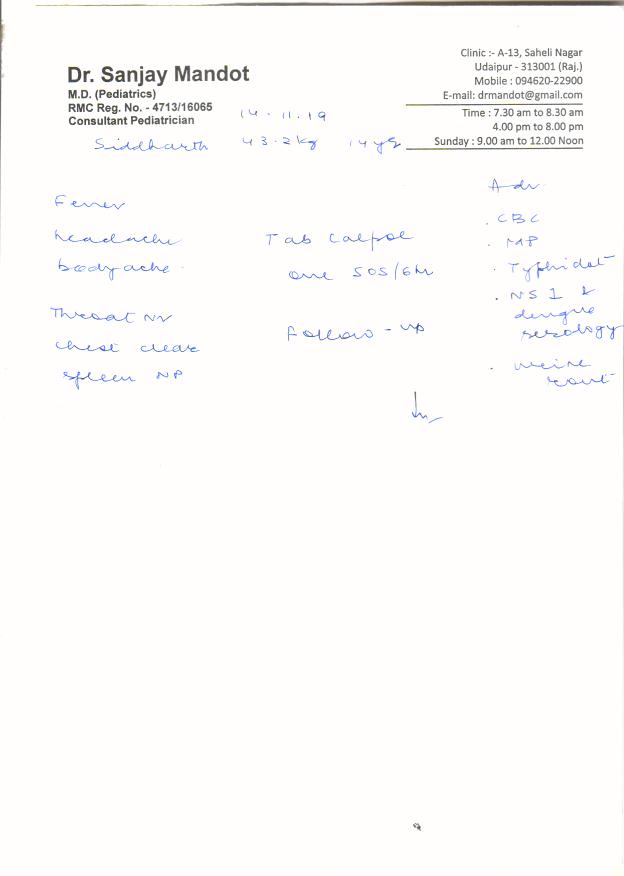 Dr. Sanjay Mandot
M.D. (Pediatrics)
RMC Reg. No. - 4713/16065
Consultant Pediatrician
Clinic :- A-13, Saheli Nagar
Udaipur - 313001 (Raj.)
Mobile : 094620-22900
E-mail: drmandot@gmail.com
Time : 7.30 am to 8.30 am
4.00 pm to 8.00 pm
Sunday : 9.00 am to 12.00 Noon
14.11.19
Siddharth 43.2kg 14 yrs
Fever
headache
bodyache
Throat
chest clear
spleen NP
Tab Calpol
one SOS/6hr
Follow-up
Adv.
. CBC
. MP
. Typhidot
. NS1 &
dengue
serology
. urine
rout